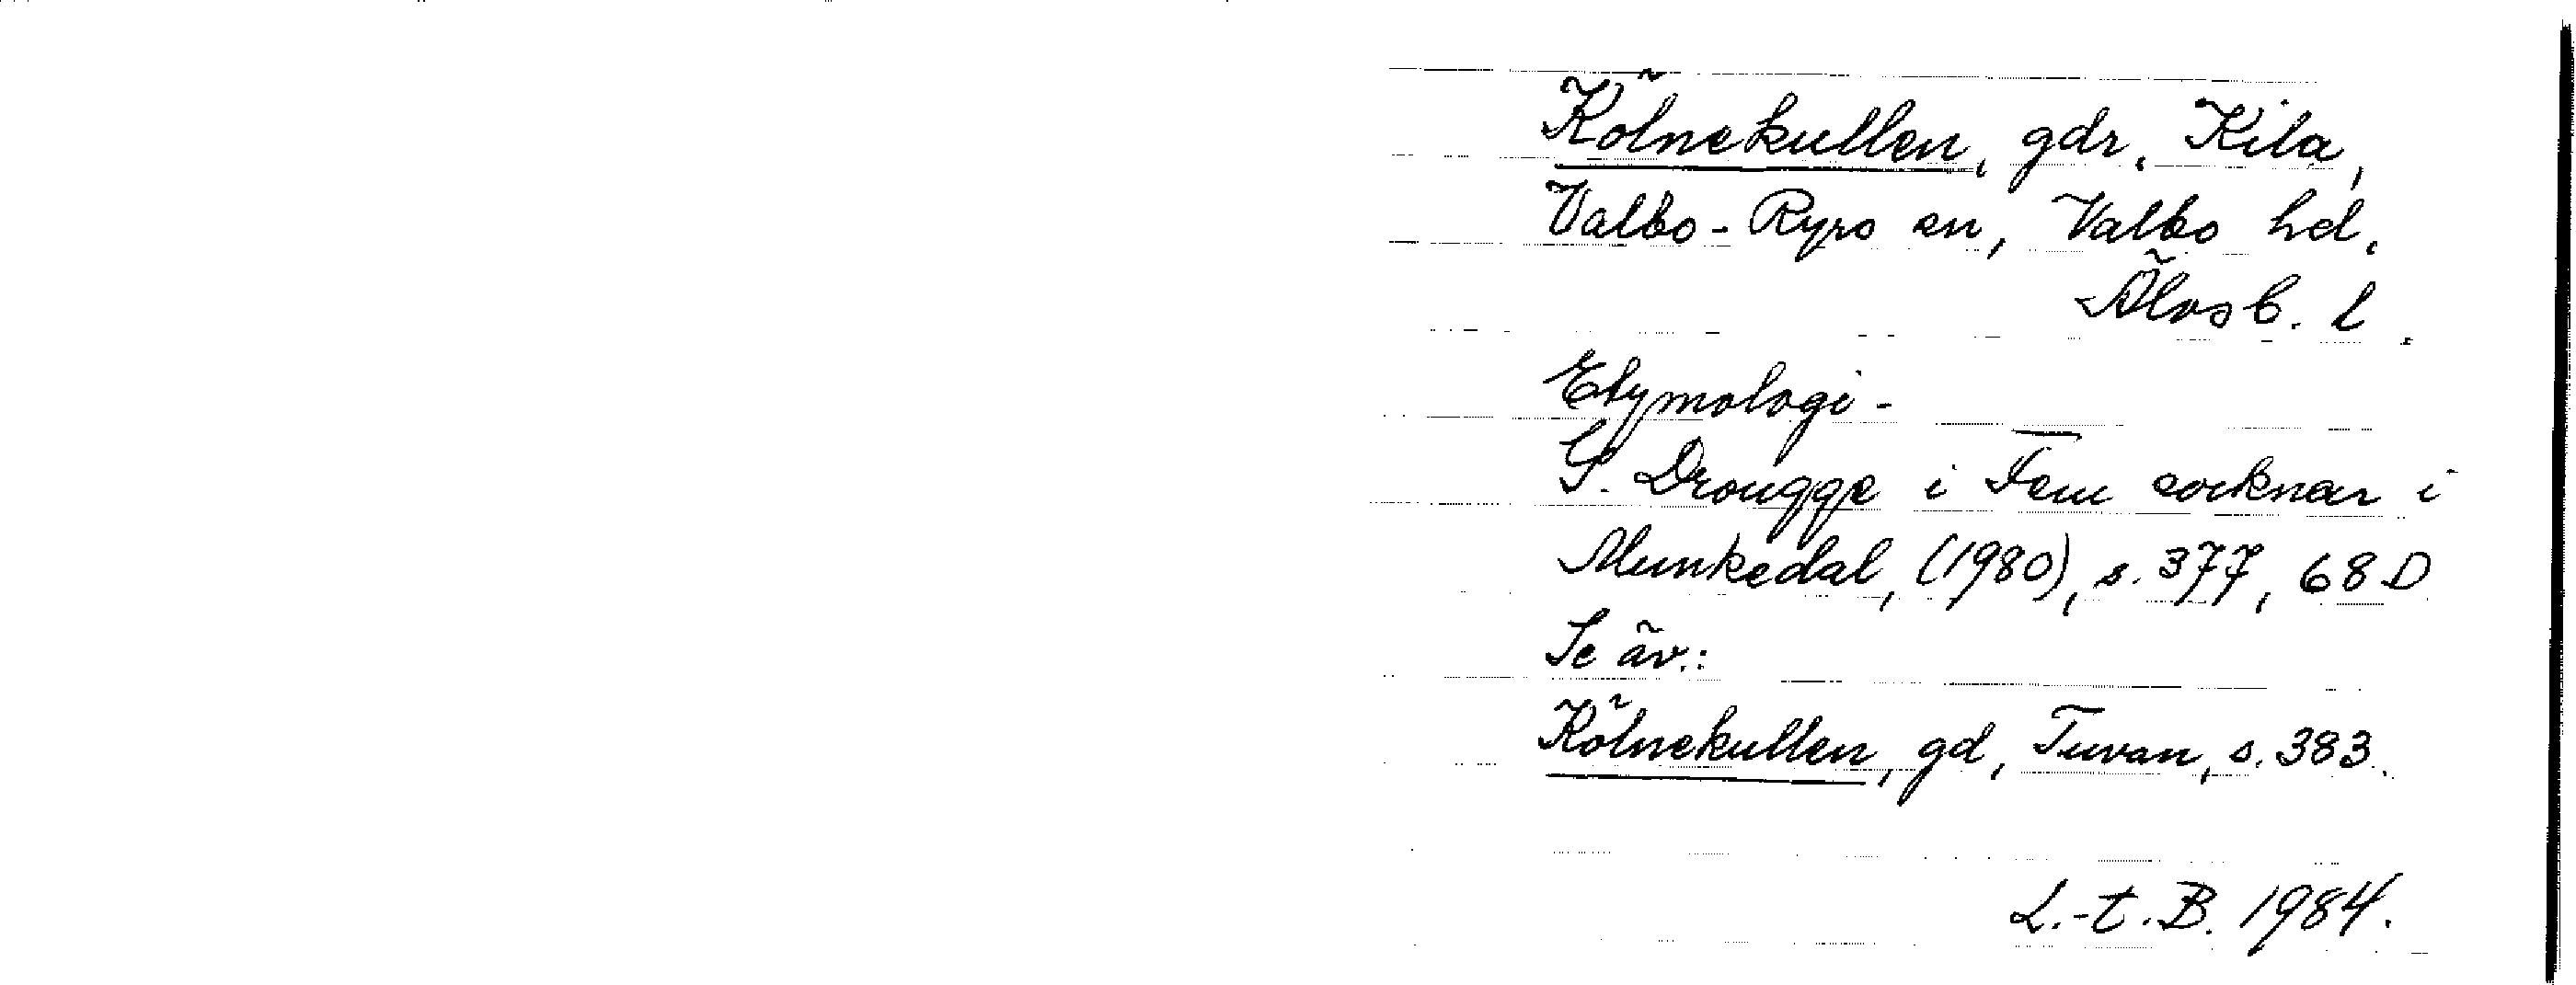 Kölnekullen, gdr, Kila,
Valbo-Ryrs sn, Valbo hd,
Älvsb. l.
Etymologi -
G. Drougge i Fem socknar i
Munkedal, (1980), s. 377, 68 D
Se äv.:
Kölnekullen, gd, Tuvan, s. 383.
L.-t. B. 1984.